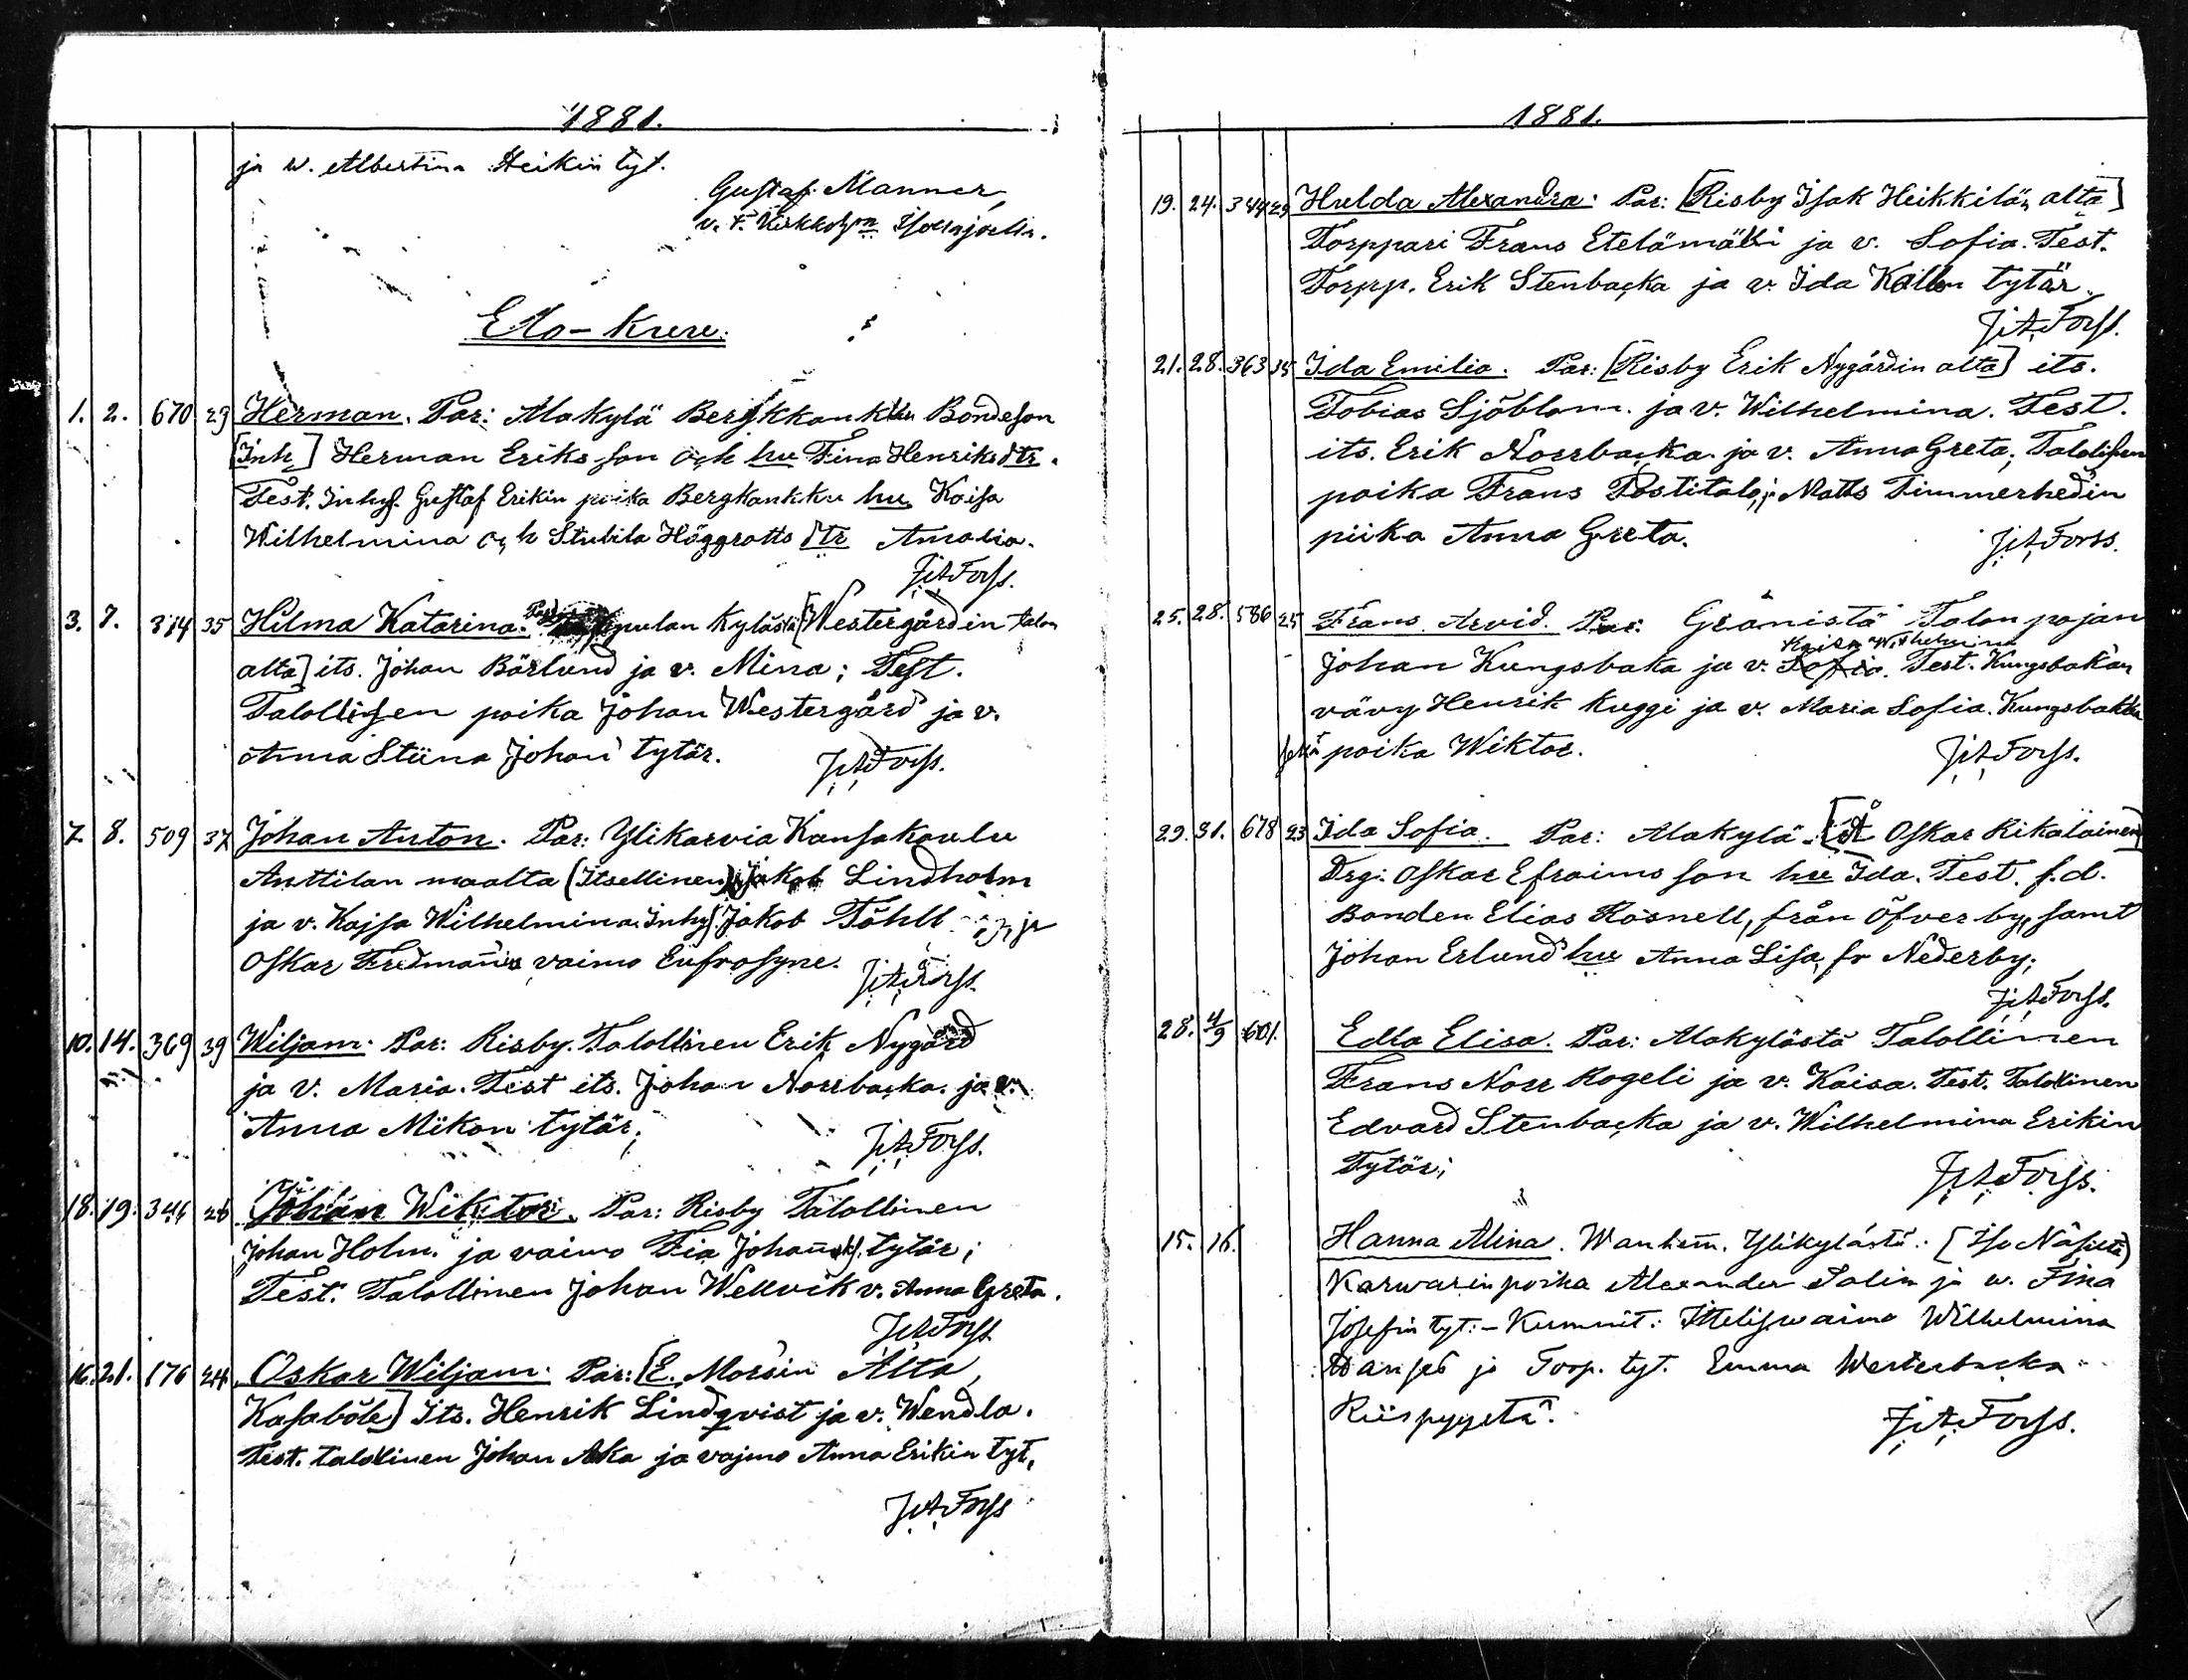 1881.
ja w. Albertina Heikin tyt.
Gustaf Manner,
v. t.
Elo-kuu.
1. 2. 670 29 Herman. Par: Alakylä Bergkkankku Bondeson
[Inh] Herman Eriks son och hu Fina Henriksdtr.
Test. Inhys. Gustaf Erikin poika Bergkankku hu Kaisa
Wilhelmina och Stubila Höggratts dtr Amalia.
JAForss.
3. 7. 374 35 Hilma Katarina. Par. kylästä [Westergårdin talon
alta] its. Johan Bärlund ja v. Mina; Test.
Talollisen poika Johan Westergård ja v.
Anna Stiina Johan tytär. JAForss.
7. 8. 509 37 Johan Anton. Par: Ylikarvia Kansakoulu
Anttilan maalta (Itsellinen) Jakob Lindholm
ja v. Kajsa Wilhelmina. Inhys. Jakob Töhll ja
Oskar Fredmans vaimo Eufrosyne. JAForss.
10. 14. 369 39 Wiljam. Par: Risby. Talollinen Erik Nygård
ja v. Maria. Test its. Johan Norrbacka. ja v.
Anna Mikon tytär; JAForss.
18. 19. 346 26 Johan Wiktor. Par: Risby Talollinen
Johan Holm. ja vaimo Fia Johans tytär;
Test. Talollinen Johan Wellvik v. Anna Greta.
JAForss.
16. 21. 176 24 Oskar Wiljam. Par: [E. Morsin Alta,
Kasaböle] Its. Henrik Lindqvist ja v. Wendla.
Test. talollinen Johan Aka ja vajmo Anna Erikin tyt,
JAForss
1881.
19. 24. 344 29 Hulda Alexandra. Par: [Risby Isak Heikkilän alta]
Torppari Frans Etelämäki ja v. Sofia. Test.
Torpp. Erik Stenbacka ja v. Ida Kallen tytär.
JAForss.
21. 28. 363 35 Ida Emilia. Par: [Risby Erik Nygårdin alta] its.
Tobias Sjöblom. ja v. Wilhelmina. Test.
its. Erik Norrbacka ja v. Anna Greta; Talolisen
poika Frans Postitalo, ja Matts Timmerhedin
piika Anna Greta. JAForss.
25. 28. 586 25 Frans Arvid. Par: Gränistä Talon pojan
Kaisa Wilhelmina
Johan Kungsbaka ja v. Sofia. Test. Kungsbakan
vävy Henrik Kuggi ja v. Maria Sofia. Kungsbakka
poika Wiktor. JAForss.
29. 31. 678 23 Ida Sofia. Par: Alakylä [Å Oskar Rikalainen]
Drg: Oskar Efraims son hu Ida. Test. f.d.
Bonden Elias Rosnell, från Öfverby, samt
Johan Erlund hu Anna Lisa, fr Nederby;
JAForss.
28. 4/9 601. Edla Elisa. Par: Alakylästä Talollinen
Frans Norr Rogeli ja v. Kaisa. Test. Talollinen
Edvard Stenbacka ja v. Wilhelmina Erikin
Tytär; JAForss.
15. 16. Hanna Alina. Wanhem. Ylikylästä. [Iso Näsiltä]
Karwarin poika Alexander Salin ja w. Fina
Josefin tyt:- Kummit: Itselisw aimo Wilhelmina
ja Torp. tyt. Emma Westerbacka
Riispyystä. JAForss.